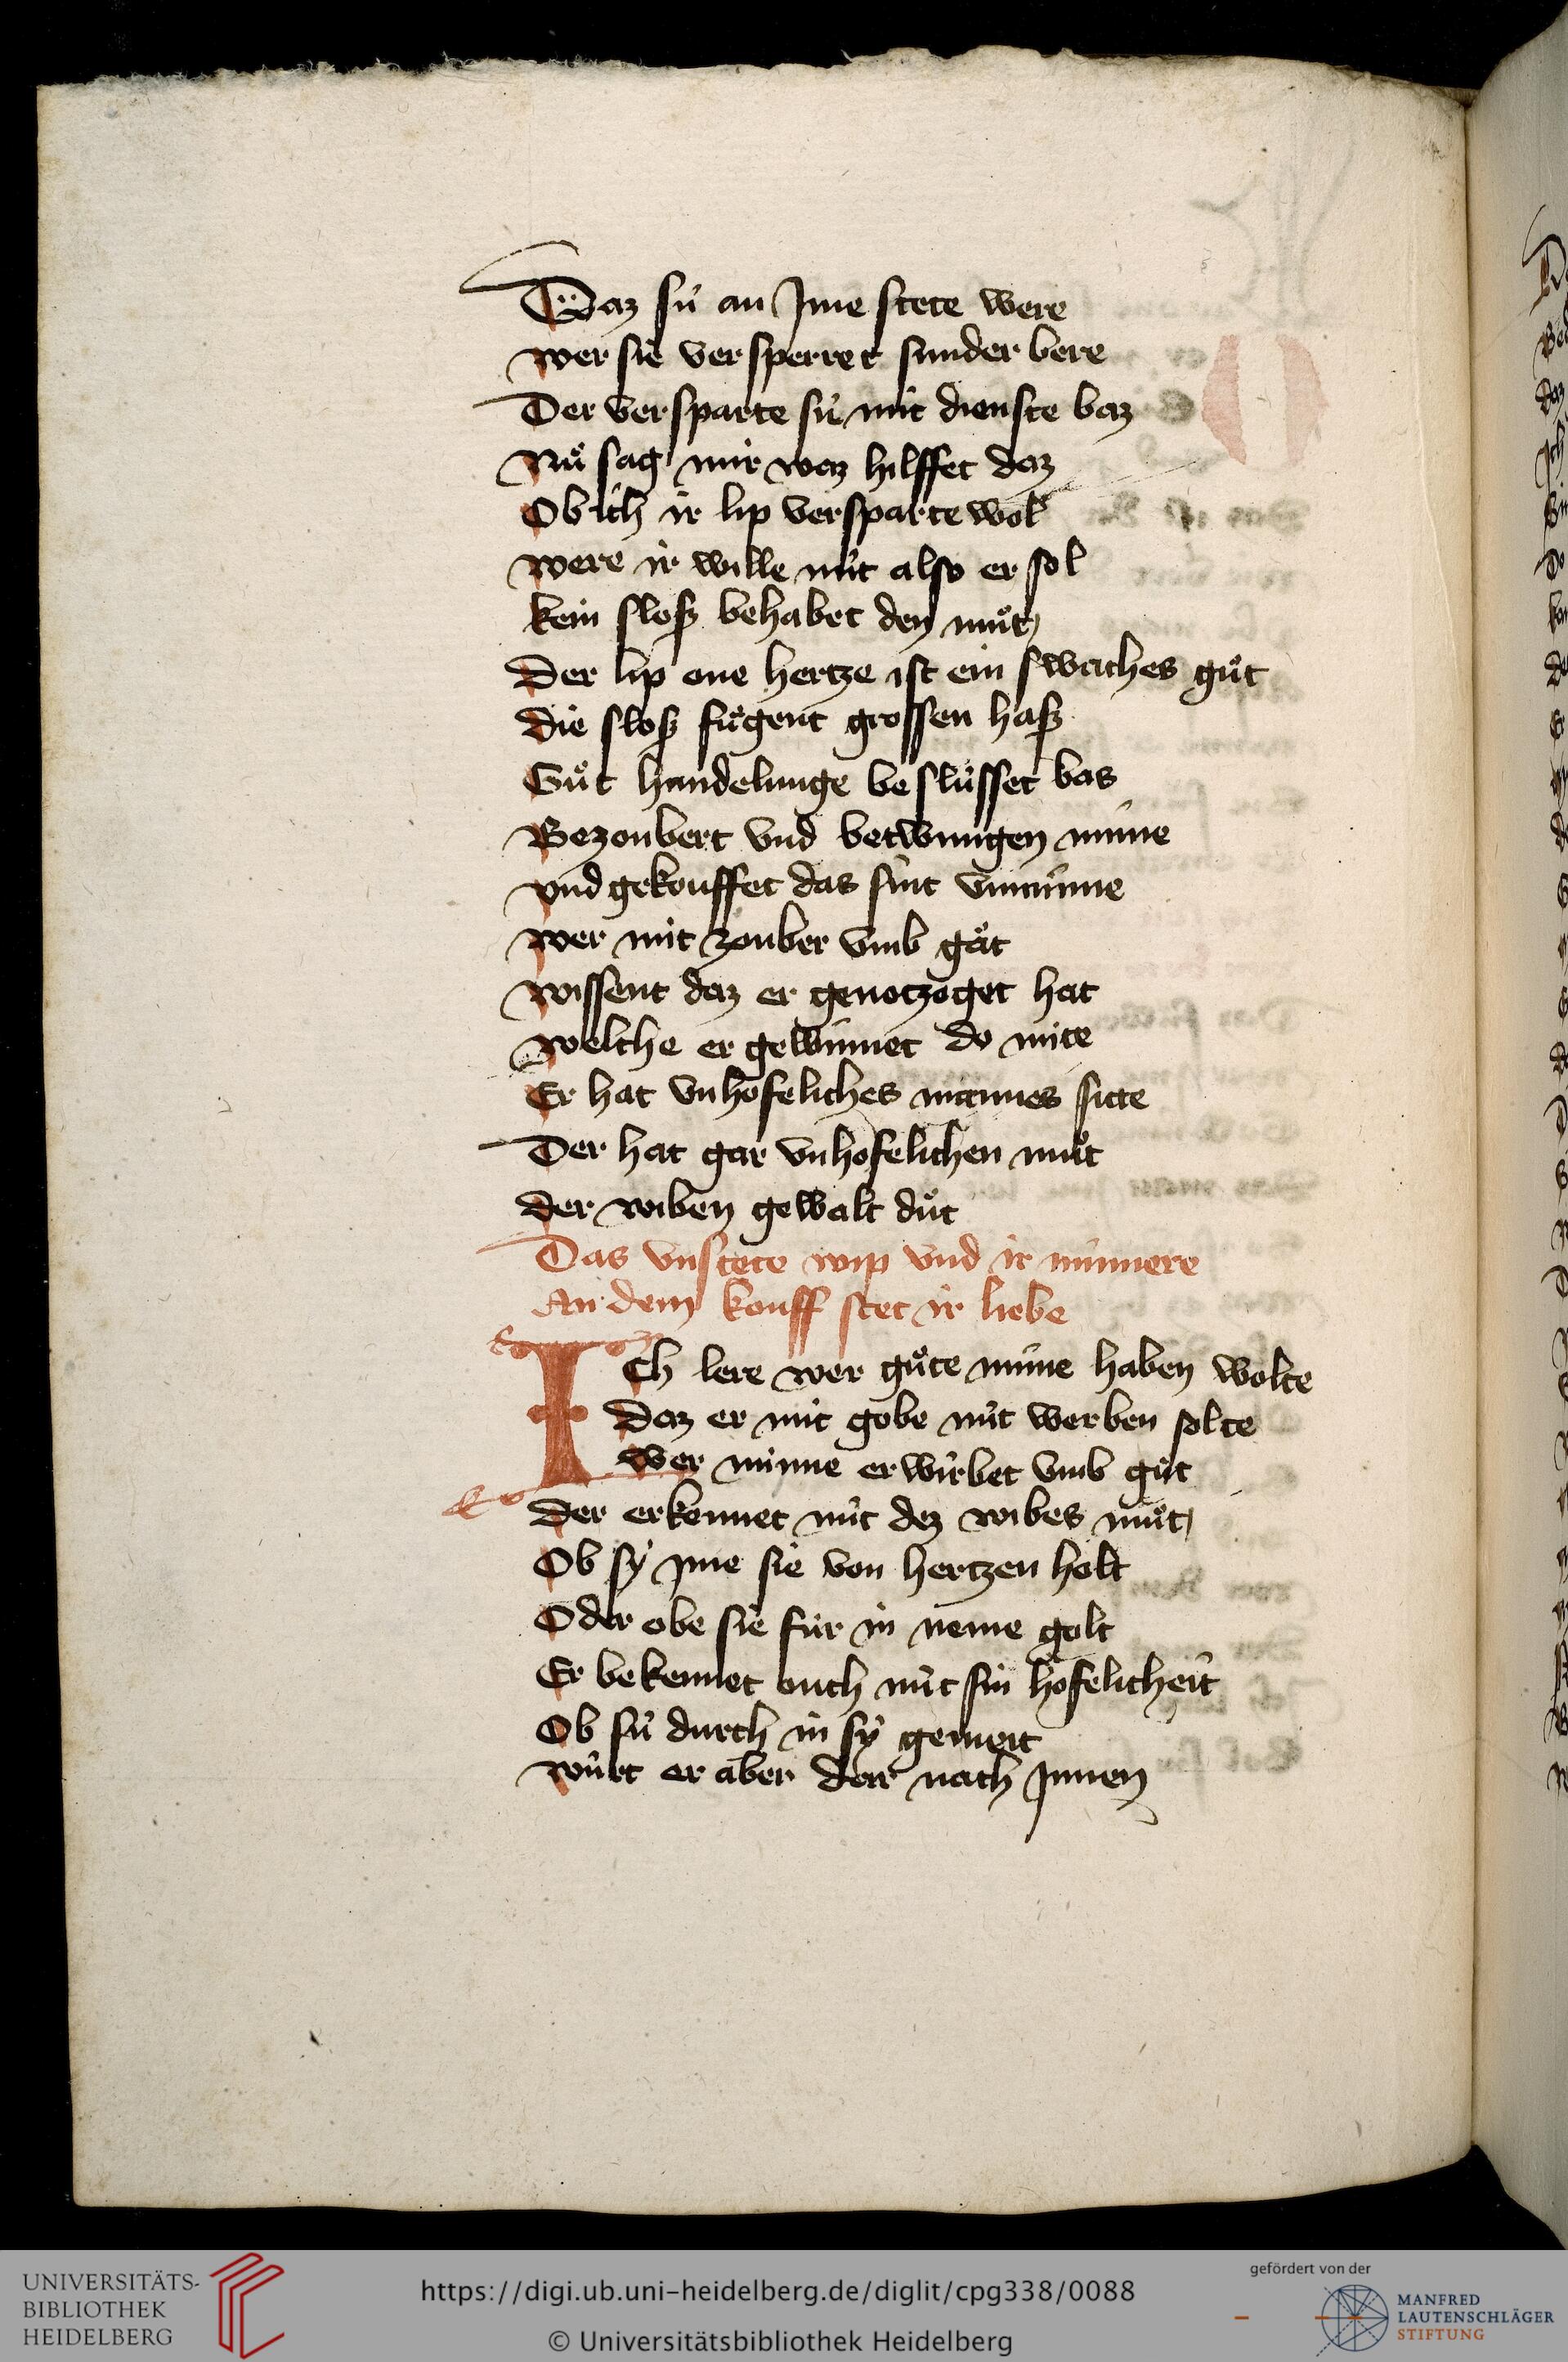 Daz sú an Jme stete were
wer sie versperret sunder bere
Der versparte sú mit dienste baz
Nuͦ sag mir waz hilffet daz
Ob ich ir lip versparte wol
were ir wille nút also er sol
kein sloß behabet den muͦt
Der lip one hertze ist ein swaches guͦt
die sloß fuͤgent grossen haß
Guͦt handelunge beslússet bas
Bezoubert vnd betwungen minne
vnd gekouffet das sint vnminne
wer mit zouber vmb gat
wissent daz er genotzoget hat
welche er gewinnet do mite
Er hat vnhofeliches mannes sitte
Der hat gar vnhofelichen muͦt
der wiben gewalt duͦt
Das vnstete wip vnd ir minnere
An dem kouff stet ir liebe
ICh lere wer guͦte minne haben wolte
daz er mit gobe nút werben solte
wer minne erwirbet vmb guͦt
der erkennet nút dez wibes muͦt
Ob sy jme sie von hertzen holt
Oder obe sie fúr in neme golt
Er bekennet ouch nút sin hofelicheit
Ob sú durch in sy gemeit
wúrt er aber dar nach Jnnen
UNIVERSITÄTS-
BIBLIOTHEK
HEIDELBERG
https://digi.ub.uni-heidelberg.de/diglit/cpg338/0088
© Universitätsbibliothek Heidelberg
gefördert von der
MANFRED
LAUTENSCHLÄGER
STIFTUNG